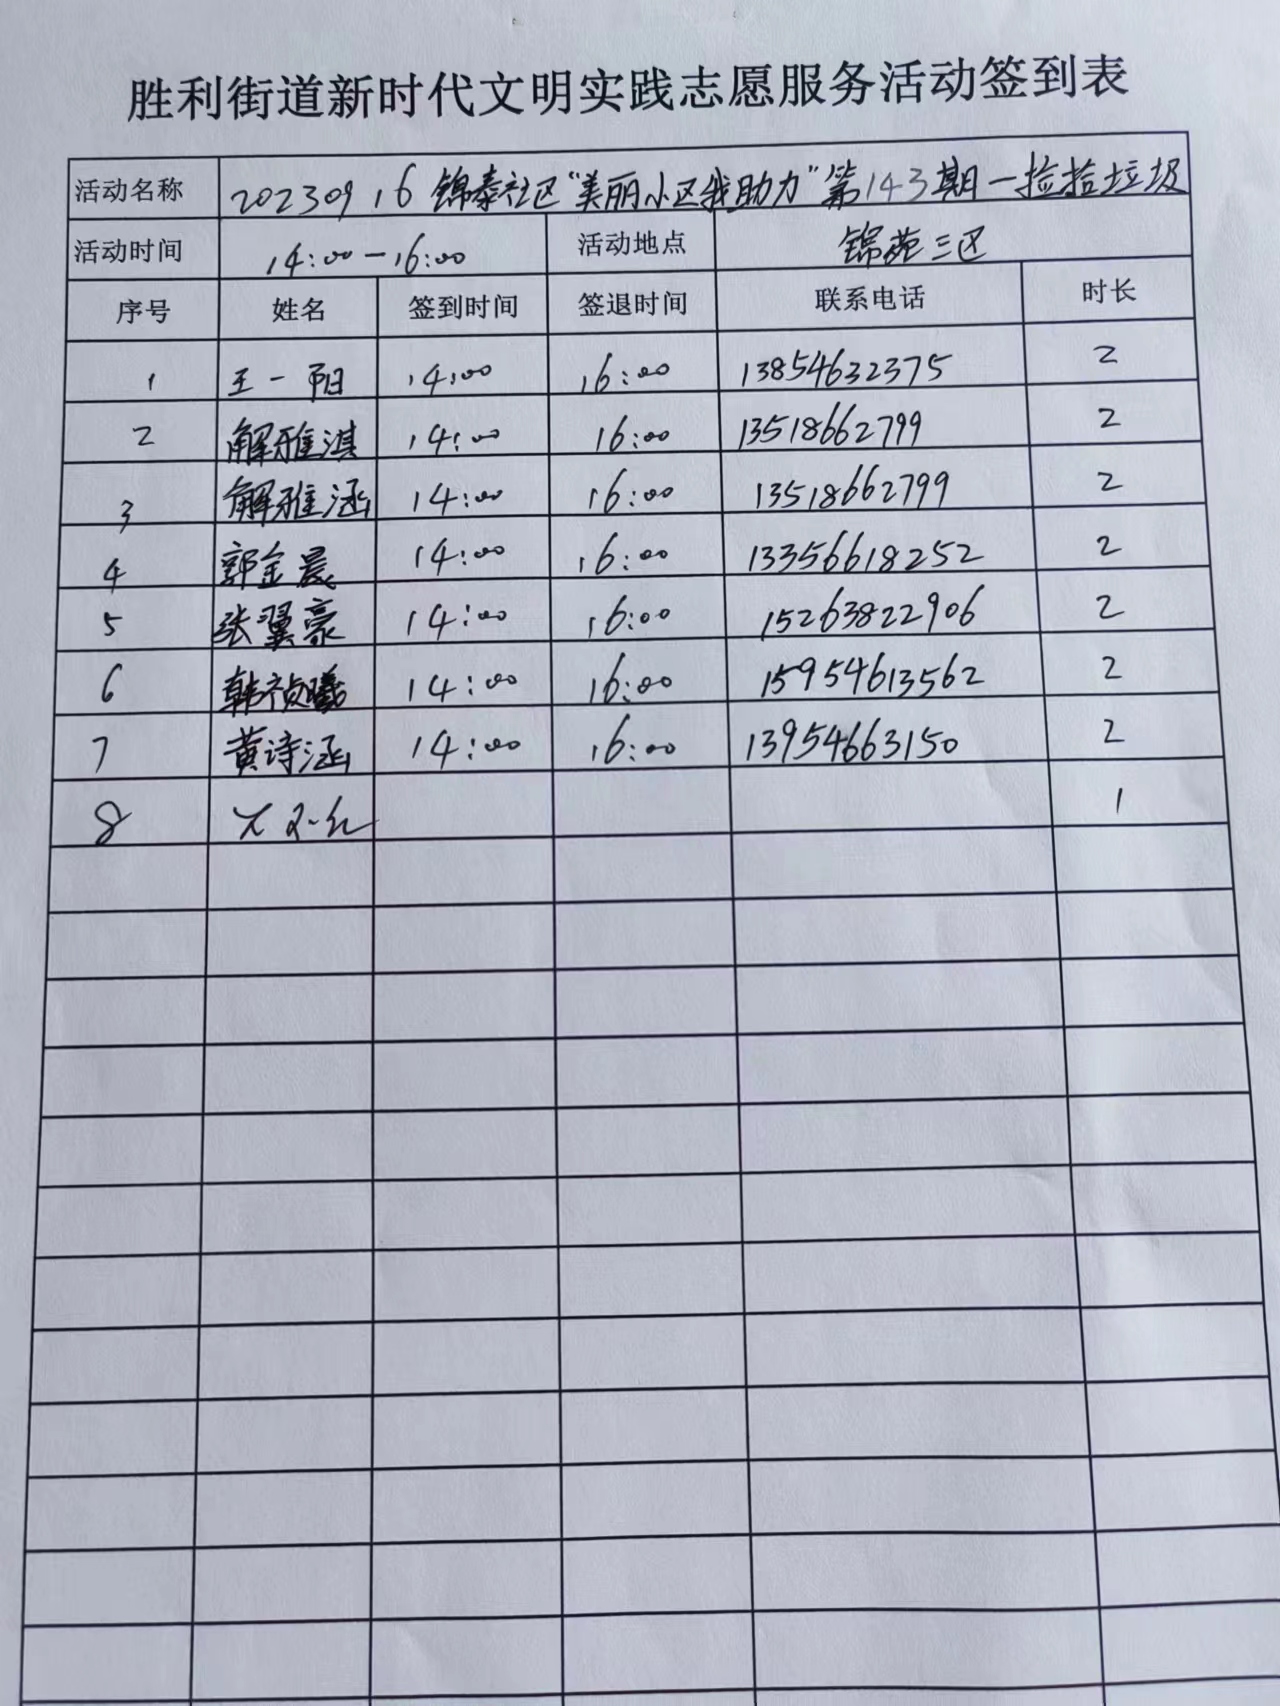 胜利街道新时代文明实践志愿服务活动签到表
活动名称 20230916 锦泰社区“美丽小区我助力”第143期一捡拾垃圾
活动时间 14:00-16:00 活动地点 锦苑三区
序号 姓名 签到时间 签退时间 联系电话 时长
1 王一阳 14:00 16:00 13854632375 2
2 解雅淇 14:00 16:00 13518662799 2
3 解雅涵 14:00 16:00 13518662799 2
4 郭金晨 14:00 16:00 13356618252 2
5 张翼豪 14:00 16:00 15263822906 2
6 韩祯曦 14:00 16:00 15954613562 2
7 黄诗涵 14:00 16:00 13954663150 2
8 1